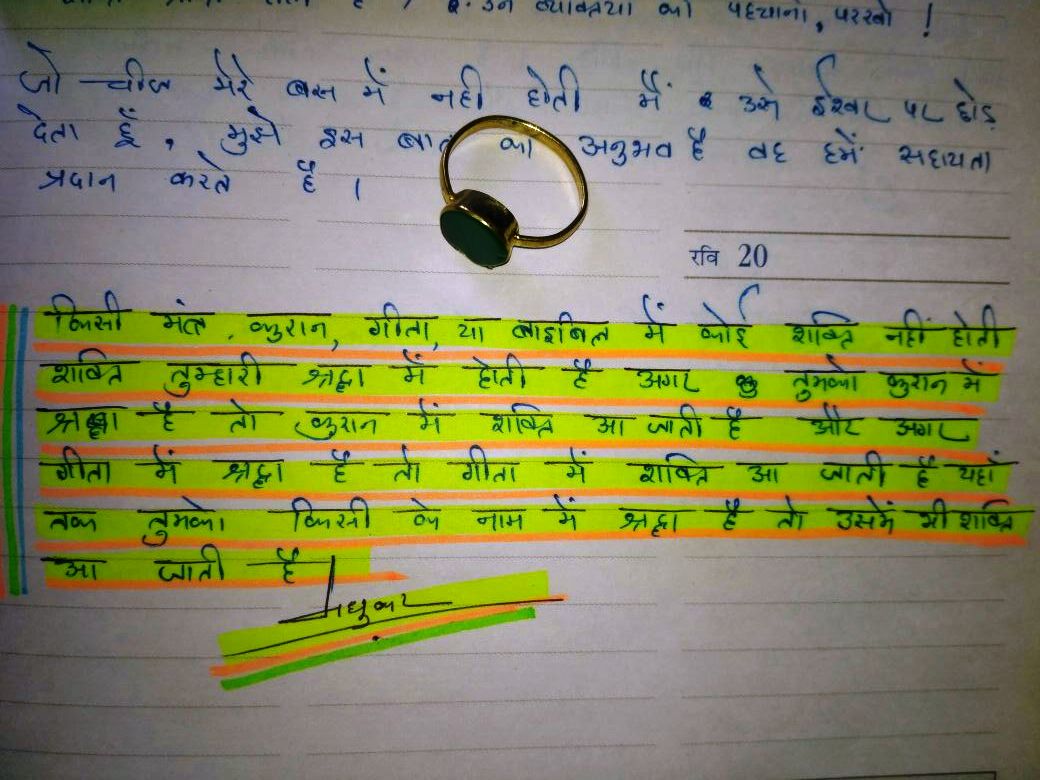 है, 2. उन व्यक्तियों को पहचानो, परखो !
जो चीज मेरे बस में नही होती मैं उसे ईश्वर पर छोड़
देता हूँ, मुझे इस बात का अनुभव है वह हमें सहायता
प्रदान करते है ।
रवि 20
किसी मंत्र, कुरान, गीता, या बाइबिल में कोई शक्ति नहीं होती
शक्ति तुम्हारी श्रद्धा में होती है अगर तुमको कुरान में
श्रद्धा है तो कुरान में शक्ति आ जाती है और अगर
गीता में श्रद्धा है तो गीता में शक्ति आ जाती है यहाँ
तक तुमको किसी के नाम में श्रद्धा है तो उसमें भी शक्ति
आ जाती है
मधुकर